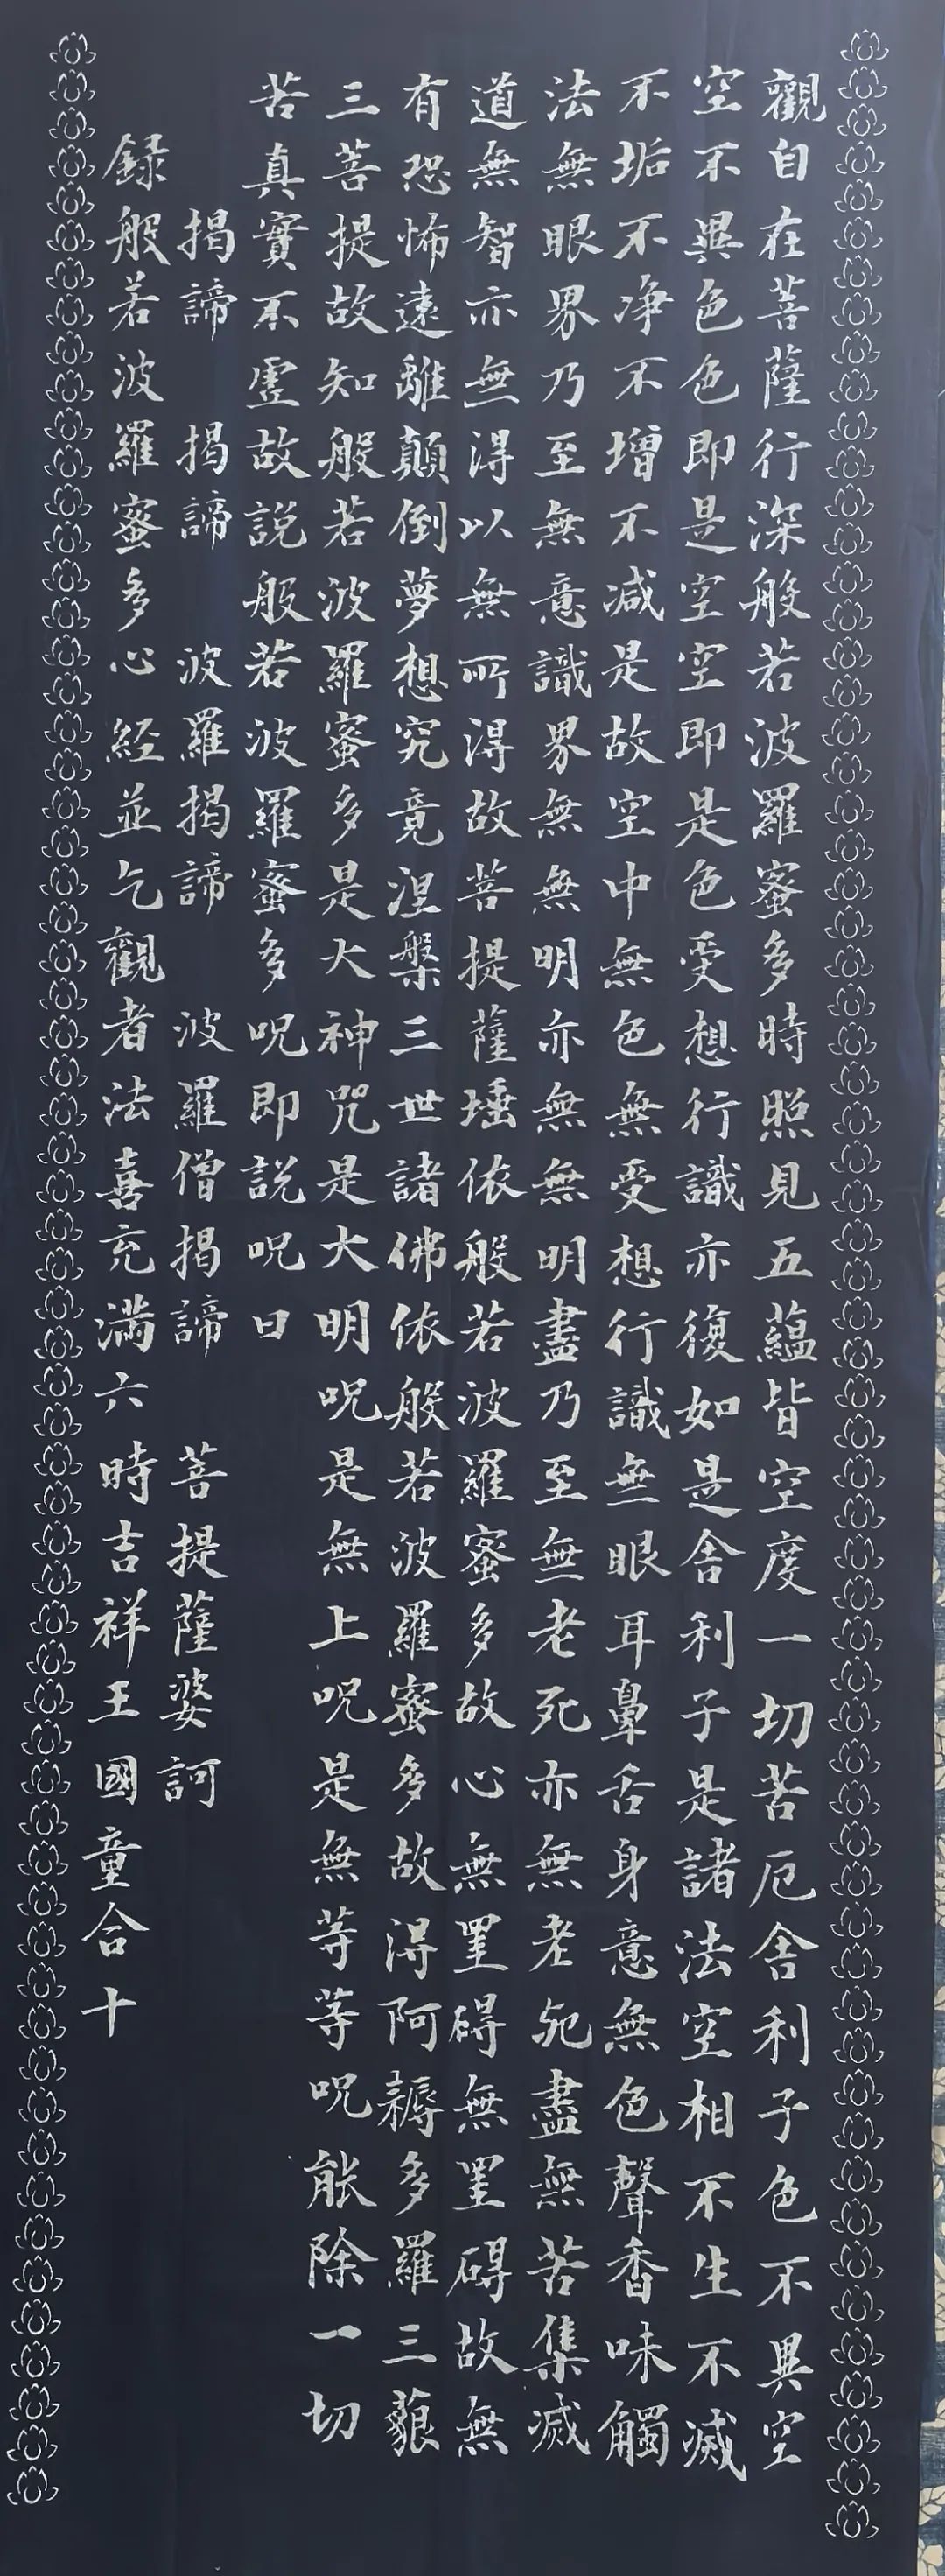 觀自在菩薩行深般若波羅蜜多時照見五蘊皆空度一切苦厄舍利子色不異空
空不異色色即是空空即是色受想行識亦復如是舍利子是諸法空相不生不滅
不垢不净不增不減是故空中無色無受想行識無眼耳鼻舌身意無色聲香味觸
法無眼界乃至無意識界無無明亦無無明盡乃至無老死亦無老死盡無苦集滅
道無智亦無得以無所得故菩提薩埵依般若波羅蜜多故心無罣碍無罣碍故無
有恐怖遠離顛倒夢想究竟涅槃三世諸佛依般若波羅蜜多故得阿耨多羅三藐
三菩提故知般若波羅蜜多是大神咒是大明呪是無上呪是無等等呪能除一切
苦真實不虛故説般若波羅蜜多呪即説呪曰
揭諦 揭諦 波羅揭諦 波羅僧揭諦 菩提薩婆訶
録般若波羅蜜多心経並乞觀者法喜充满六時吉祥王國童合十